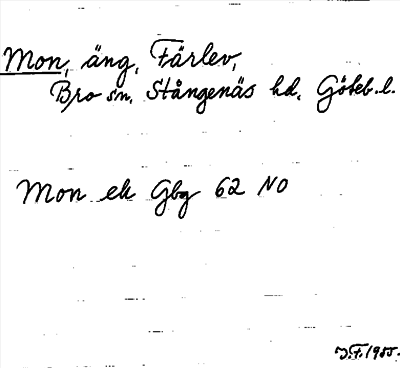 Mon, äng, Färlev,
Bro sn, Stångenäs hd, Göteb. l.
Mon ek Gbg 62 NO
J.F. 1955.